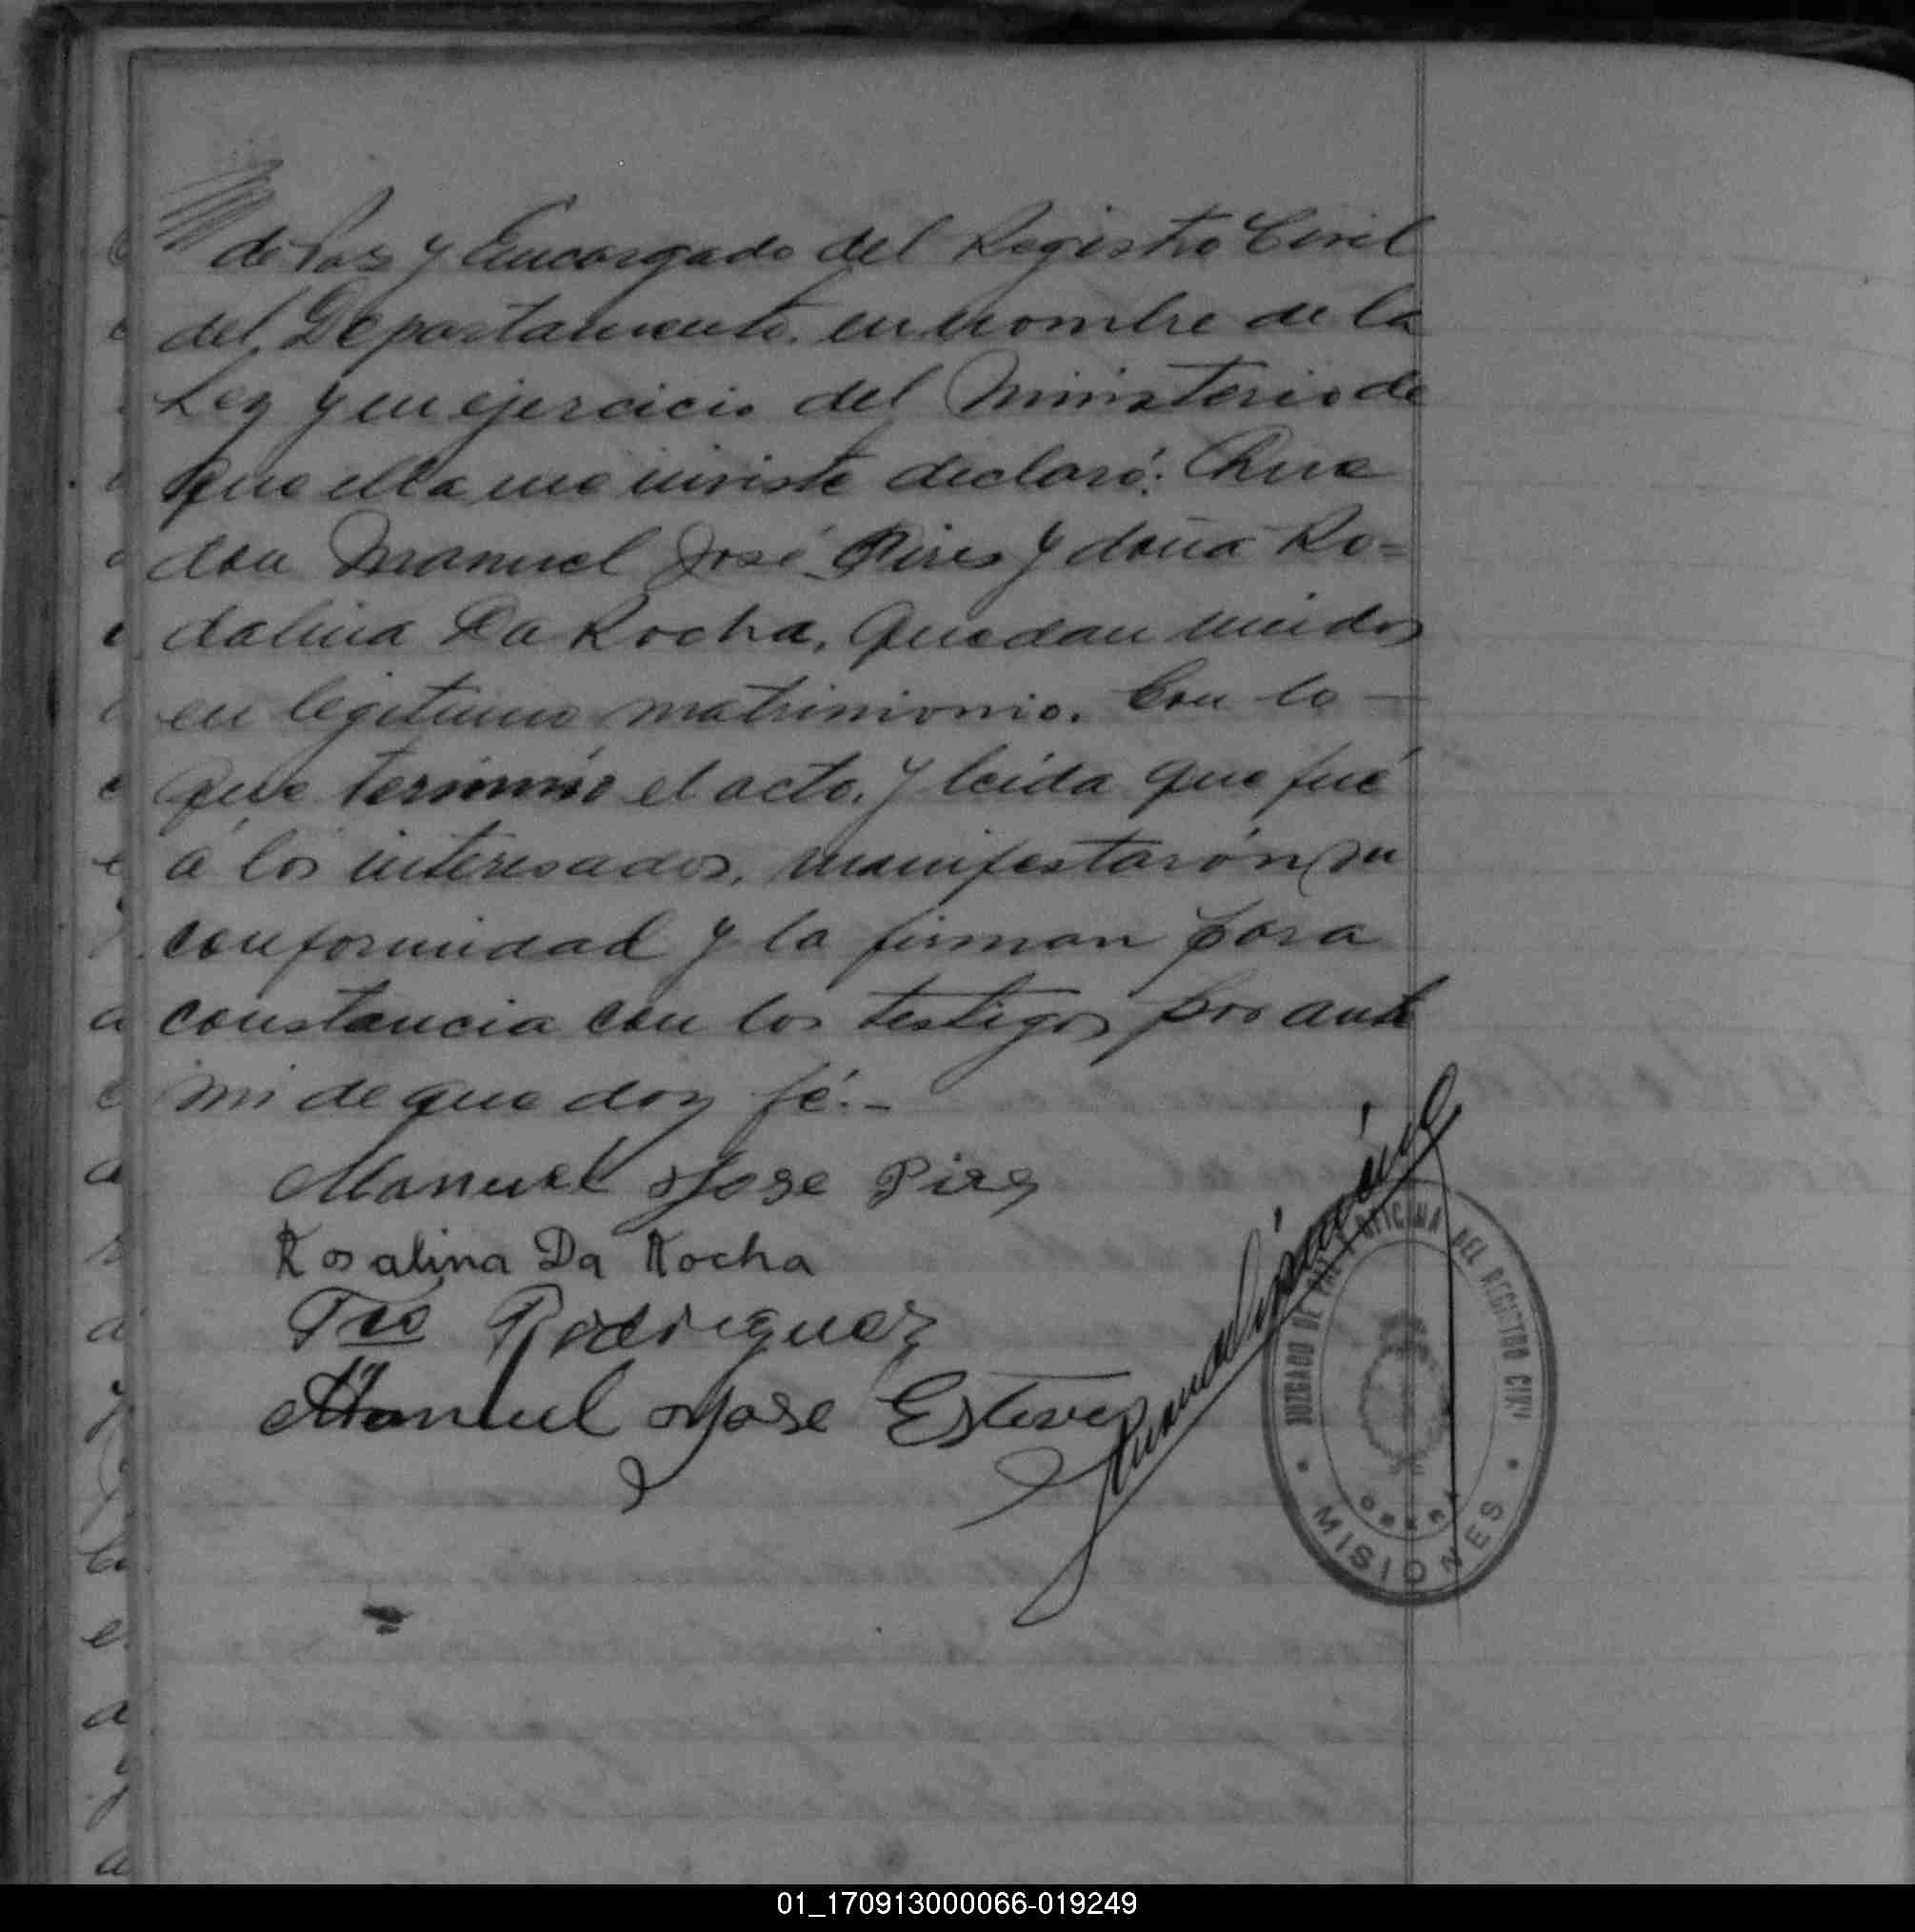 de Paz y Encargado del Registro Civil
del Departamento, en nombre de la
Ley y en ejercicio del Ministerio de
que ella me inviste declaró: Que
don Manuel José Pires y doña Ro=
dalina Da Rocha, quedan unidos
en legitimo matrimonio. Con lo —
que terminó el acto, y leida que fué
á los interesados, manifestarón su
conformidad y la firman para
constancia con los testigos por ante
mi de que doy fé.-
Manuel Jose Pires
Rosalina Da Rocha
Fco Rodriguez
Manuel Jose Esteves
JUZGADO DE PAZ Y OFICINA DEL REGISTRO CIVIL
MISIONES
01_170913000066-019249